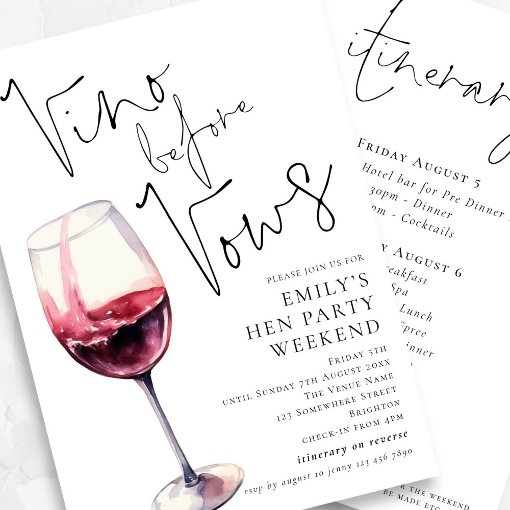 Vino
before
Vows
PLEASE JOIN US FOR
EMILY'S
HEN PARTY
WEEKEND
FRIDAY 5TH
UNTIL SUNDAY 7TH AUGUST 20XX
THE VENUE NAME
123 SOMEWHERE STREET
BRIGHTON
CHECK-IN FROM 4PM
itinerary on reverse
rsvp by august 10 jenny 123 456 7890
itinerary
FRIDAY AUGUST 5
Hotel bar for Pre Dinner
30pm - Dinner
pm - Cocktails
AUGUST 6
Spa
Lunch
THE WEEKEND
BE MADE ETC